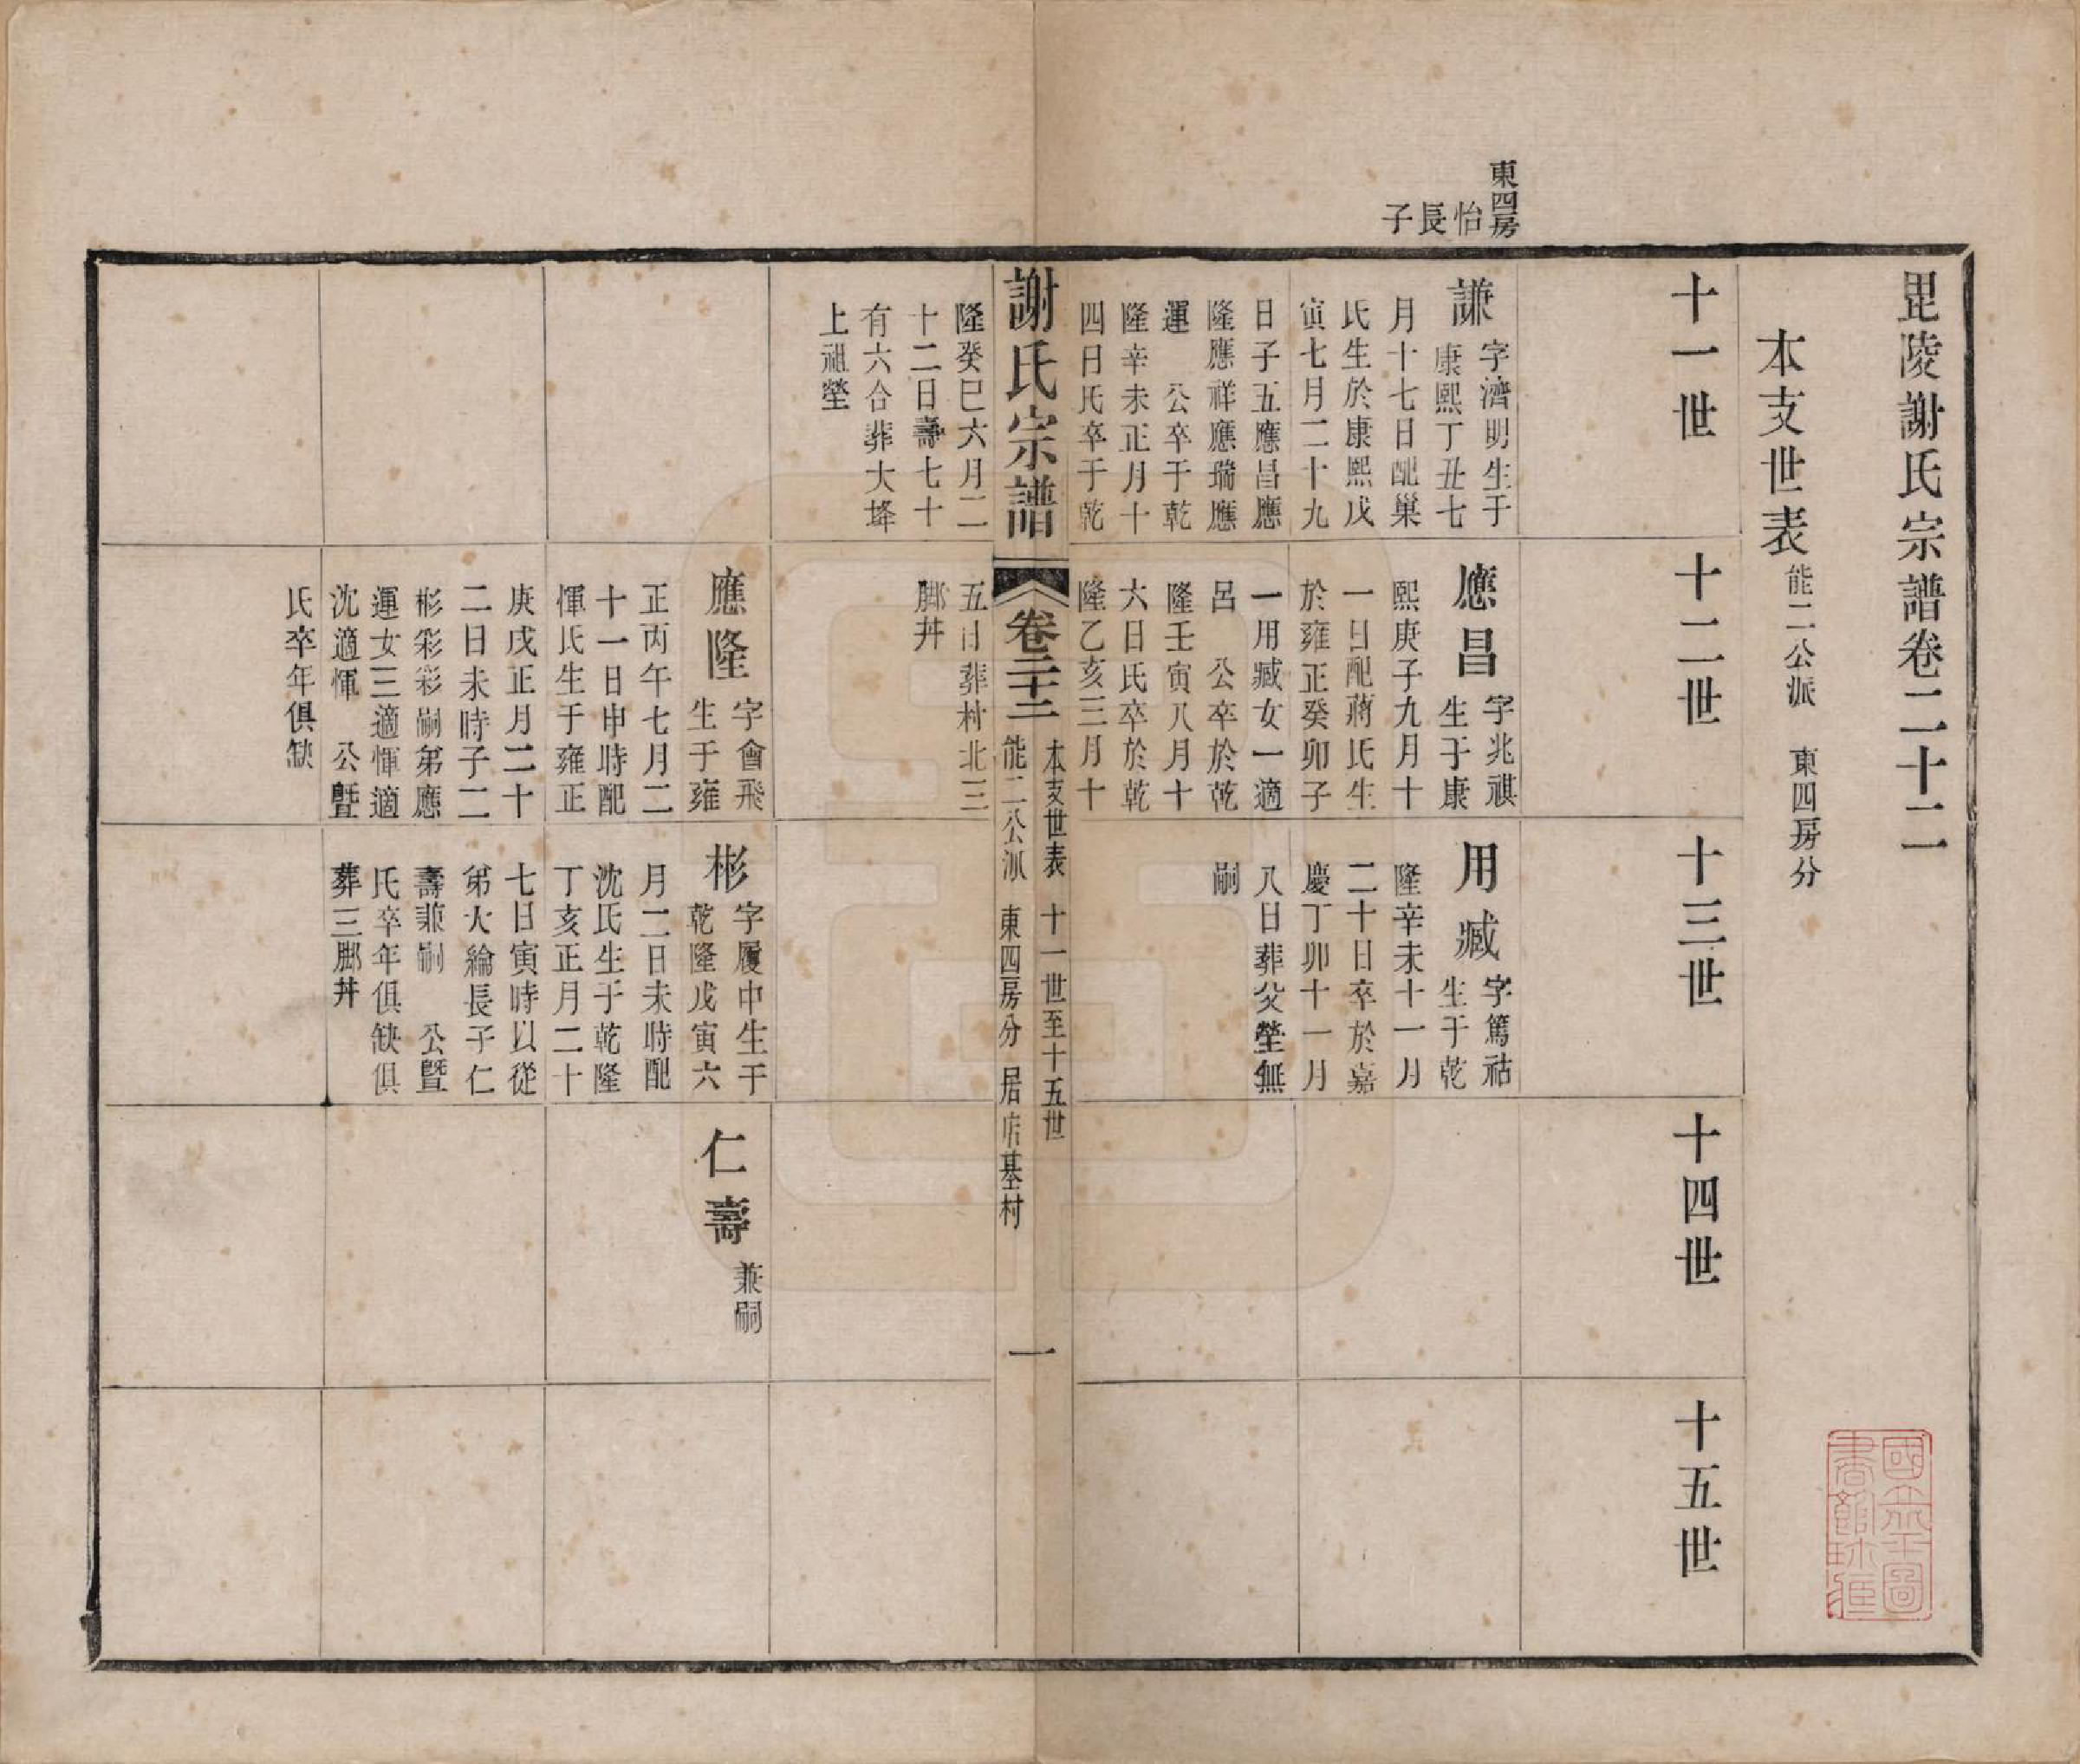 毘陵謝氏宗譜卷二十二
本支世表 能二公派 東四房分
十一世
十二世
十三世
十四世
十五世
東四房
怡長子
謙 字濟明生于
康熙丁丑七
月十七日配巢
氏生於康熙戊
寅七月二十九
日子五應昌應
隆應祥應瑞應
運 公卒于乾
隆辛未正月十
四日氏卒于乾
隆癸巳六月二
十二日壽七十
有六合葬大塳
上祖塋
應昌 字兆祺
生于康
熙庚子九月十
一日配蔣氏生
於雍正癸卯子
一用臧女一適
呂 公卒於乾
隆壬寅八月十
六日氏卒於乾
隆乙亥三月十
五日葬村北三
脚丼
用臧 字篤祜
生于乾
隆辛未十一月
二十日卒於嘉
慶丁卯十一月
八日葬父塋無
嗣
謝氏宗譜 卷二十二
本支世表 十一世至十五世
能二公派 東四房分 居店基村
一
應隆 字會飛
生于雍
正丙午七月二
十一日申時配
惲氏生于雍正
庚戌正月二十
二日未時子二
彬彩彩嗣弟應
運女三適惲適
沈適惲 公暨
氏卒年俱缺
彬 字履中生于
乾隆戊寅六
月二日未時配
沈氏生于乾隆
丁亥正月二十
七日寅時以從
弟大綸長子仁
壽兼嗣 公暨
氏卒年俱缺俱
葬三脚丼
仁壽 兼嗣